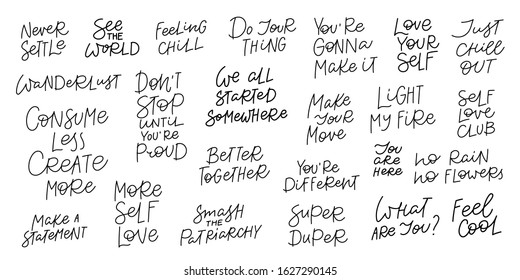 Never
Settle
See
the
World
Feeling
Chill
Do Your
Thing
You're
Gonna
Make it
Love
Your
Self
Just
Chill
Out
Wanderlust
Don't
Stop
until
You're
Proud
We all
Started
Somewhere
Make
Your
Move
Light
My Fire
Self
Love
Club
Consume
Less
Create
More
Better
Together
You're
Different
You
are
Here
No Rain
No Flowers
Make a
Statement
More
Self
Love
Smash
the
Patriarchy
Super
Duper
What
are You?
Feel
Cool
shutterstock.com · 1627290145